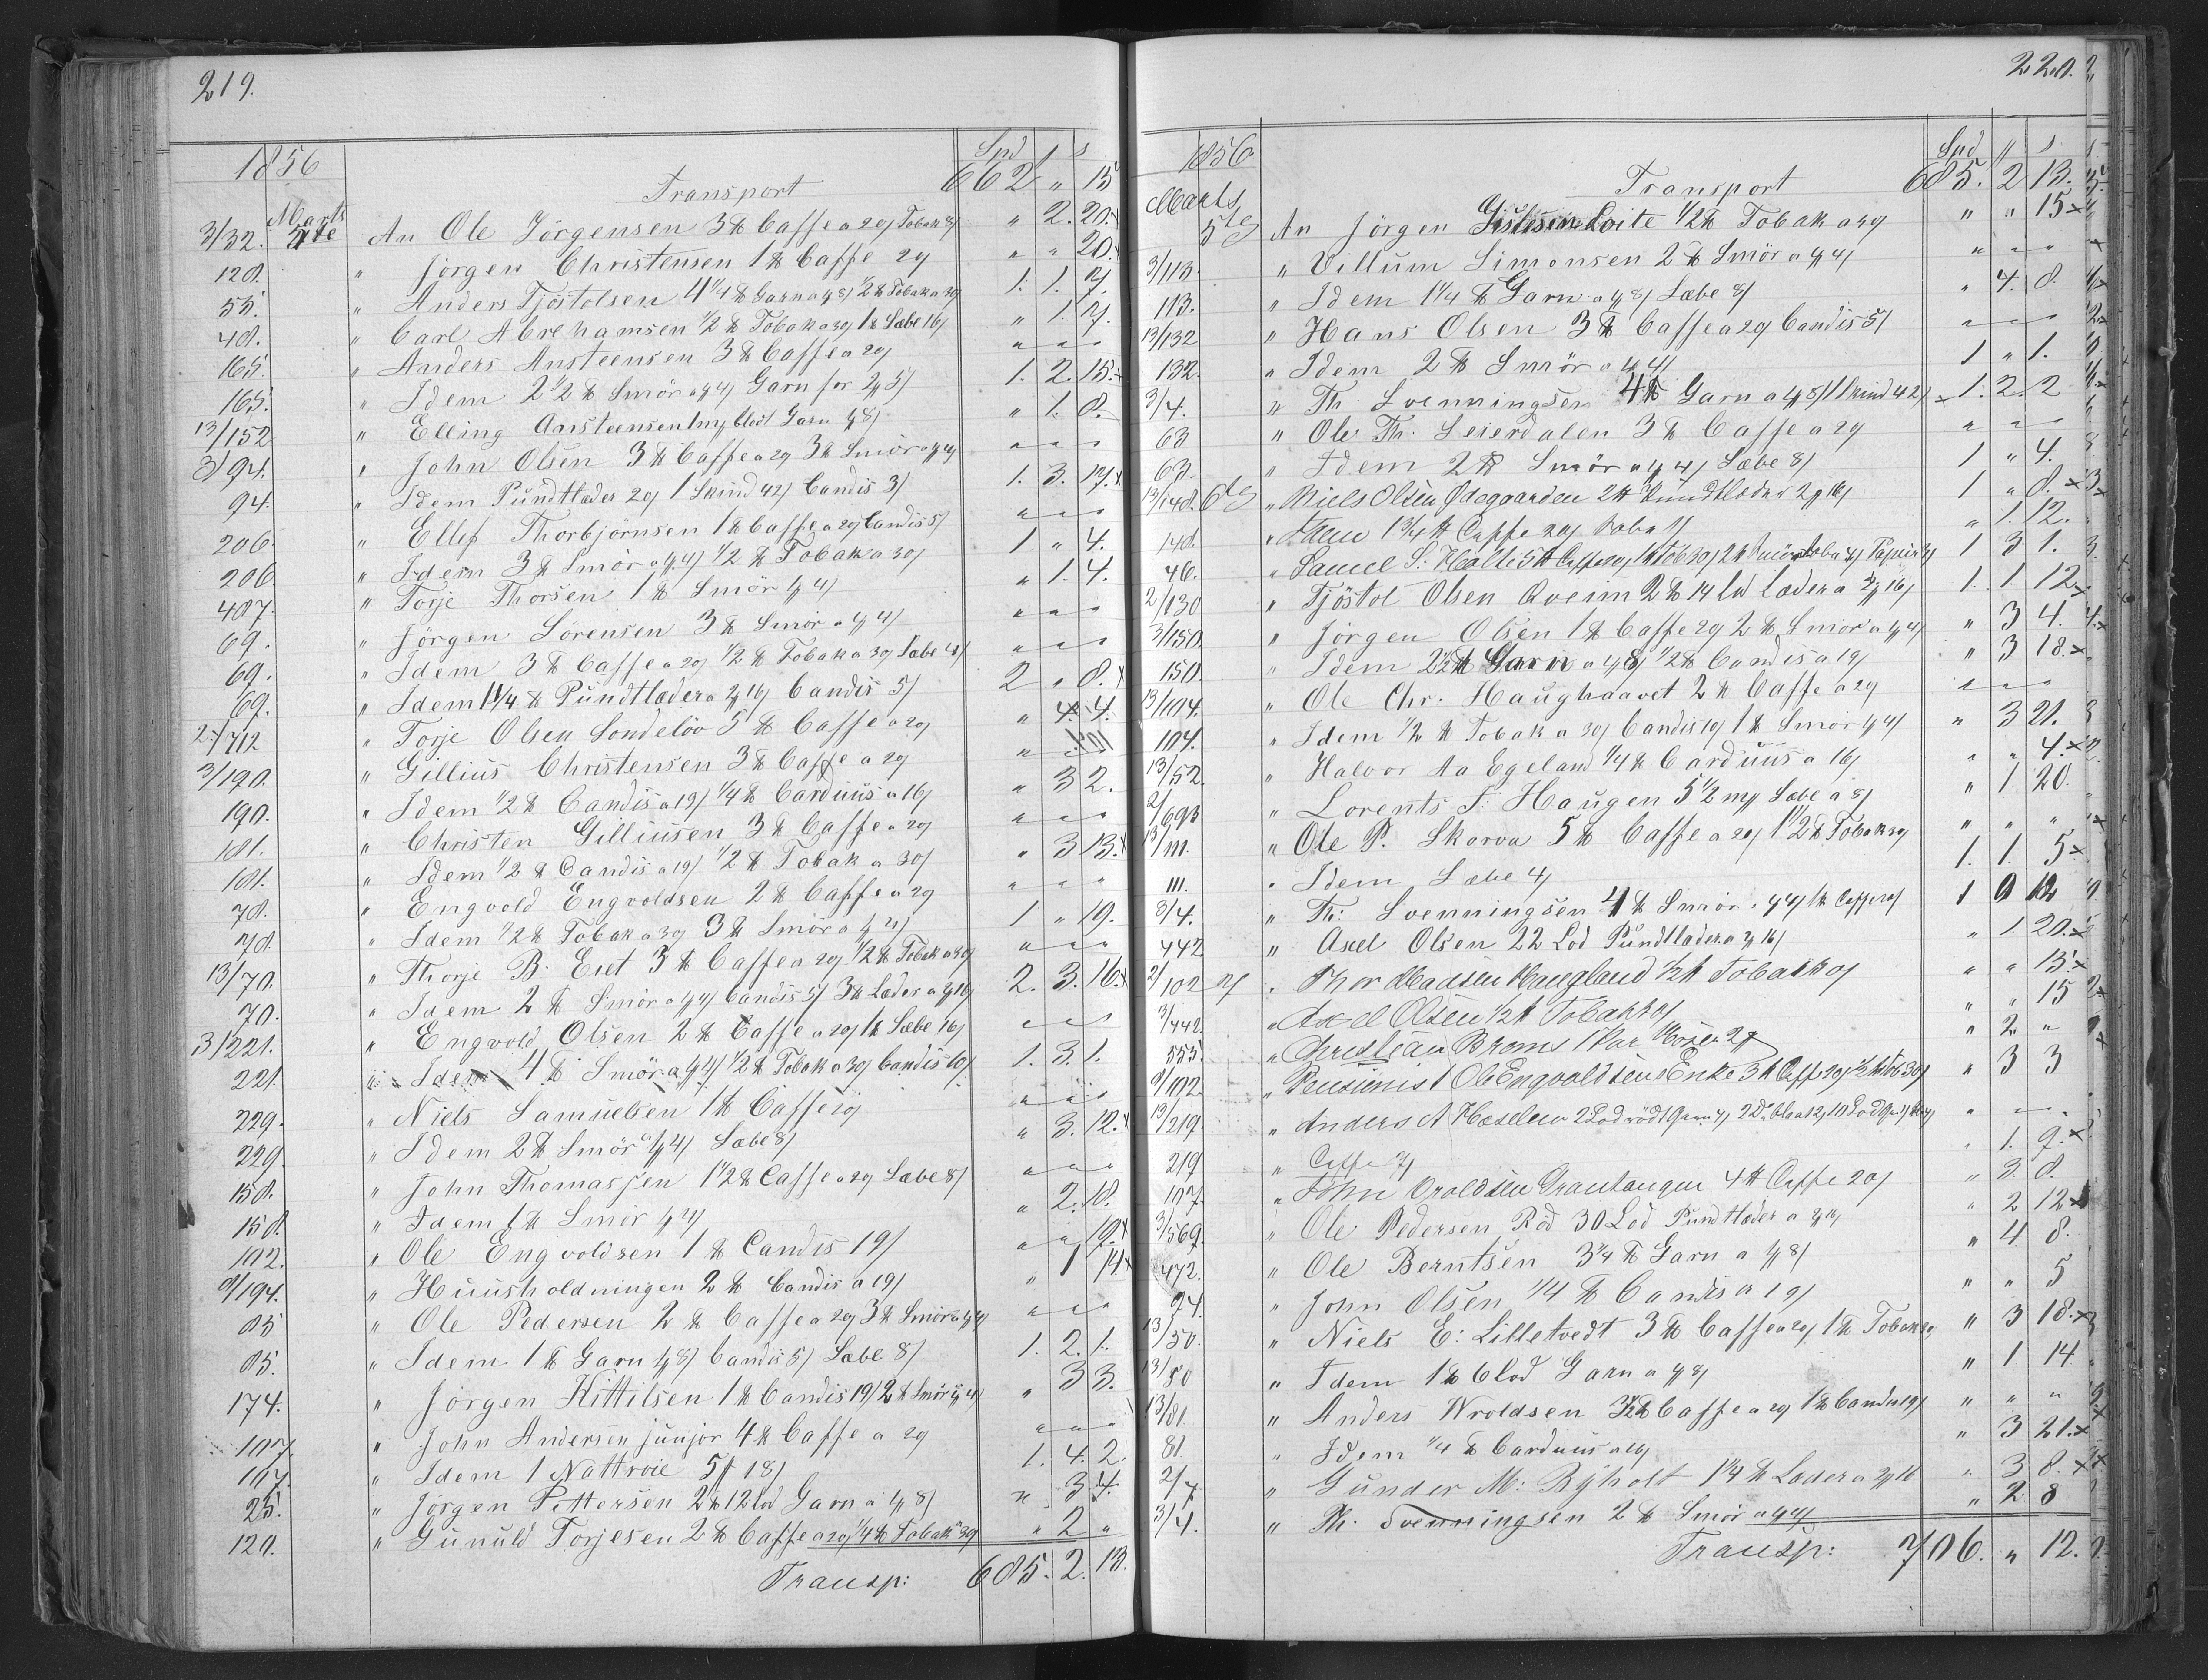 219.
1856 Spd s
Transport 662 " 15
3/32. Marts 5te An Ole Jörgensen 3 ℔ Caffe a 20/ Tobak 8/ " 2. 20. x
128. " Jörgen Christensen 1 ℔ Caffe 20/ " " 20. x
55. " Anders Tjöstolsen 4 1/4 ℔ Garn a 8/ 1/2 ℔ Tobak a 30/ 1. 1. 7.
48. " Carl Abrehamsen 1/2 ℔ Tobak a 30/ 1 ℔ Sæbe 16/ " 1. 7.
165. " Anders Ansteensen 3 ℔ Caffe a 20/ " " "
165. " Idem 2 1/2 ℔ Smör a 4/ Garn for 5/ 1. 2. 15. x
13/152 " Elling Ansteensen Garn 8/ " 1. 8.
3/94. " John Olsen 3 ℔ Caffe a 20/ 3 ℔ Smör a 4/ " " "
94. " Idem Pundtlæder 20/ 1 Skind 42/ Candis 3/ 1. 3. 17. x
206. " Ellef Thorbjörnsen 1 ℔ Caffe a 20/ Candis 5/ " " "
206 " Idem 3 ℔ Smör a 4/ 1/2 ℔ Tobak a 30/ 1 " 4.
407. " Torje Thorsen 1 ℔ Smör 4/ " 1. 4.
69. " Jörgen Sörensen 3 ℔ Smör a 4/ " " "
69. " Idem 3 ℔ Caffe a 20/ 1/2 ℔ Tobak a 30/ Sæbe 4/ " " "
69. " Idem 1 1/4 ℔ Pundtlæder a 16/ Candis 5/ 2 " 8. x
2/712 " Torje Olsen Sondelöv 5 ℔ Caffe a 20/ " 4. 4.
3/190. " Gillius Christensen 3 ℔ Caffe a 20/
190. " Idem 1/2 ℔ Candis a 19/ 1/4 ℔ Carduus a 16/ " 3 2.
181. " Christen Gilliusen 3 ℔ Caffe a 20/ " " "
181. " Idem 1/2 ℔ Candis a 19/ 1/2 ℔ Tobak a 30/ " 3 13. x
78. " Engvold Engvoldsen 2 ℔ Caffe a 20/ " " "
78. " Idem 1/2 ℔ Tobak a 30/ 3 ℔ Smör a 4/ 1 " 19.
13/70. " Thorje B. Eiet 3 ℔ Caffe a 20/ 1/2 ℔ Tobak a 30/ " " "
70. " Idem 2 ℔ Smör a 4/ Candis 5/ 3 ℔ Læder a 16/ 2. 3. 16. x
3/221. " Engvold Olsen 2 ℔ Caffe a 20/ 1 ℔ Sæbe 16/ " " "
221. " Idem 4 ℔ Smör a 4/ 1/2 ℔ Tobak a 30/ Candis 10/ 1. 3. 1.
229. " Niels Samuelsen 1 ℔ Caffe 20/ " " "
229. " Idem 2 ℔ Smör a 4/ Sæbe 8/ " 3. 12. x
158. " John Thomassen 1 1/2 ℔ Caffe a 20/ Sæbe 8/ " " "
158. " Idem 1 ℔ Smör 4/ " 2. 18.
102. " Ole Engvoldsen 1 ℔ Candis 19/ " " 19. x
8/194. " Huusholdningen 2 ℔ Candis a 19/ " 1 14 x
85 " Ole Pedersen 2 ℔ Caffe a 20/ 3 ℔ Smör a 4/ " " "
85. " Idem 1 ℔ Garn 8/ Candis 5/ Sæbe 8/ 1. 2. 1.
174. " Jörgen Kittilsen 1 ℔ Candis 19/ 2 ℔ Smör 4/ " 3 3.
107. " John Andersen junjor 4 ℔ Caffe a 20/ " " "
107. " Idem 1 Nattroie 5 18/ 1. 4. 2.
25. " Jörgen Pettersen 2 ℔ 12 Lod Garn a 8/ " 3 4.
120. " Gunuld Torjesen 2 ℔ Caffe a 20/ 1/4 ℔ Tobak 30/ " 2 "
Transp: 685. 2. 13.
220.
1856 Spd s
Transport 685. 2 13.
Marts 5te An Jörgen Loite 1/2 ℔ Tobak a 30/ " " 15 x
3/113. " Villum Simonsen 2 ℔ Smör a 4/ " " "
113. " Idem 1 1/4 ℔ Garn a 8/ Sæbe 8/ " 4. 8.
13/132 " Hans Olsen 3 ℔ Caffe a 20/ Candis 5/ " " "
132. " Idem 2 ℔ Smör a 4/ 1 " 1.
3/4. " Th. Svenningsen 4 ℔ Garn a 8/ 1 Skind 42/ 1. 2. 2
63 " Ole Th. Leierdalen 3 ℔ Caffe a 20/ " " "
63. " Idem 2 ℔ Smör a 4/ Sæbe 8/ 1 " 4.
13/148. 6te " Niels Olsen Ödegaarden 2 ℔ Pundtlæder 16/ 1 " 8. x
148. " Idem 1 3/4 ℔ Caffe 20/ " 1. 12.
46. " Samuel S. Holte 5 ℔ Caffe 20/ 1 ℔ Tob 30/ 2 ℔ Smör Papier 1 3 1.
2/130 " Tjöstol Olsen Qveim 2 ℔ 14 Lod Læder a 16/ 1. 1. 12.
3/150. " Jörgen Olsen 1 ℔ Caffe 20/ 2 ℔ Smör a 4/ " 3 4.
150. " Idem 2 1/2 ℔ Garn a 8/ 1/2 ℔ Candis a 19/ " 3 18. x
13/104. " Ole Chr. Haughaavet 2 ℔ Caffe a 20/ " " "
104. " Idem 1/2 ℔ Tobak a 30/ Candis 10/ 1 ℔ Smör 4/ " 3 21.
13/52. " Halvor Aa Egeland 1/4 ℔ Carduus a 16/ " " 4. x
2/693 " Lorents F. Haugen 5 1/2 Sæbe a 8/ " 1. 20.
13/111. " Ole P. Skorva 5 ℔ Caffe a 20/ 1 1/2 ℔ Tobak 30/ " " "
111. " Idem Sæbe 4/ 1. 1. 5. x
3/4. " Th: Svenningsen 4 ℔ Smör a 4/ 1 ℔ Caffe 20/ 1 0 12
442 " Axel Olsen 22 Lod Pundtlæder a 16/ " 1 20. x
2/102 7/ " Thor Madsen Haugland 1/2 ℔ Tobak 30/ " " 15. x
3/442. " Axel Olsen 1/2 ℔ Tobak 30/ " " 15
555. " Christian Broms 1 Par Hoser 2 " 2 "
8/102. " Pensionist Ole Engvoldsens Enke 3 ℔ Caffe 20/ 1/2 ℔ Tob 30/ " 3 3
13/219. " Anders A Hæsllen 2 Lod rödt Garn " " "
219 " Caffe " 1. 9. x
107. " John Vroldsen 4 ℔ Caffe 20/ " 3. 8.
3/569. " Ole Pedersen Röd 30 Lod Pundtlæder a 16/ " 2 12 x
472. " Ole Berntsen 3 1/4 ℔ Garn a 8/ " 4. 8.
94. " John Olsen 1/4 ℔ Candis a 19/ " " 5
13/50. " Niels E: Lilletvedt 3 ℔ Caffe a 20/ 1 ℔ Tobak 30/ " 3 18. x
13/50 " Idem 1 ℔ 6 Lod Garn a 8/ " 1 14
13/81. " Anders Wroldsen 3 1/2 ℔ Caffe a 20/ 1 ℔ Candis 19/ " " "
81 " Idem 1/4 ℔ Carduus a 16/ " 3 21. x
2/7 " Gunder M: Ryholt 1 1/4 ℔ Læder a 16 " 3 8. x
3/4. " Th. Svenningsen 2 ℔ Smör a 4/ " 2 8
Transp: 706. " 12.